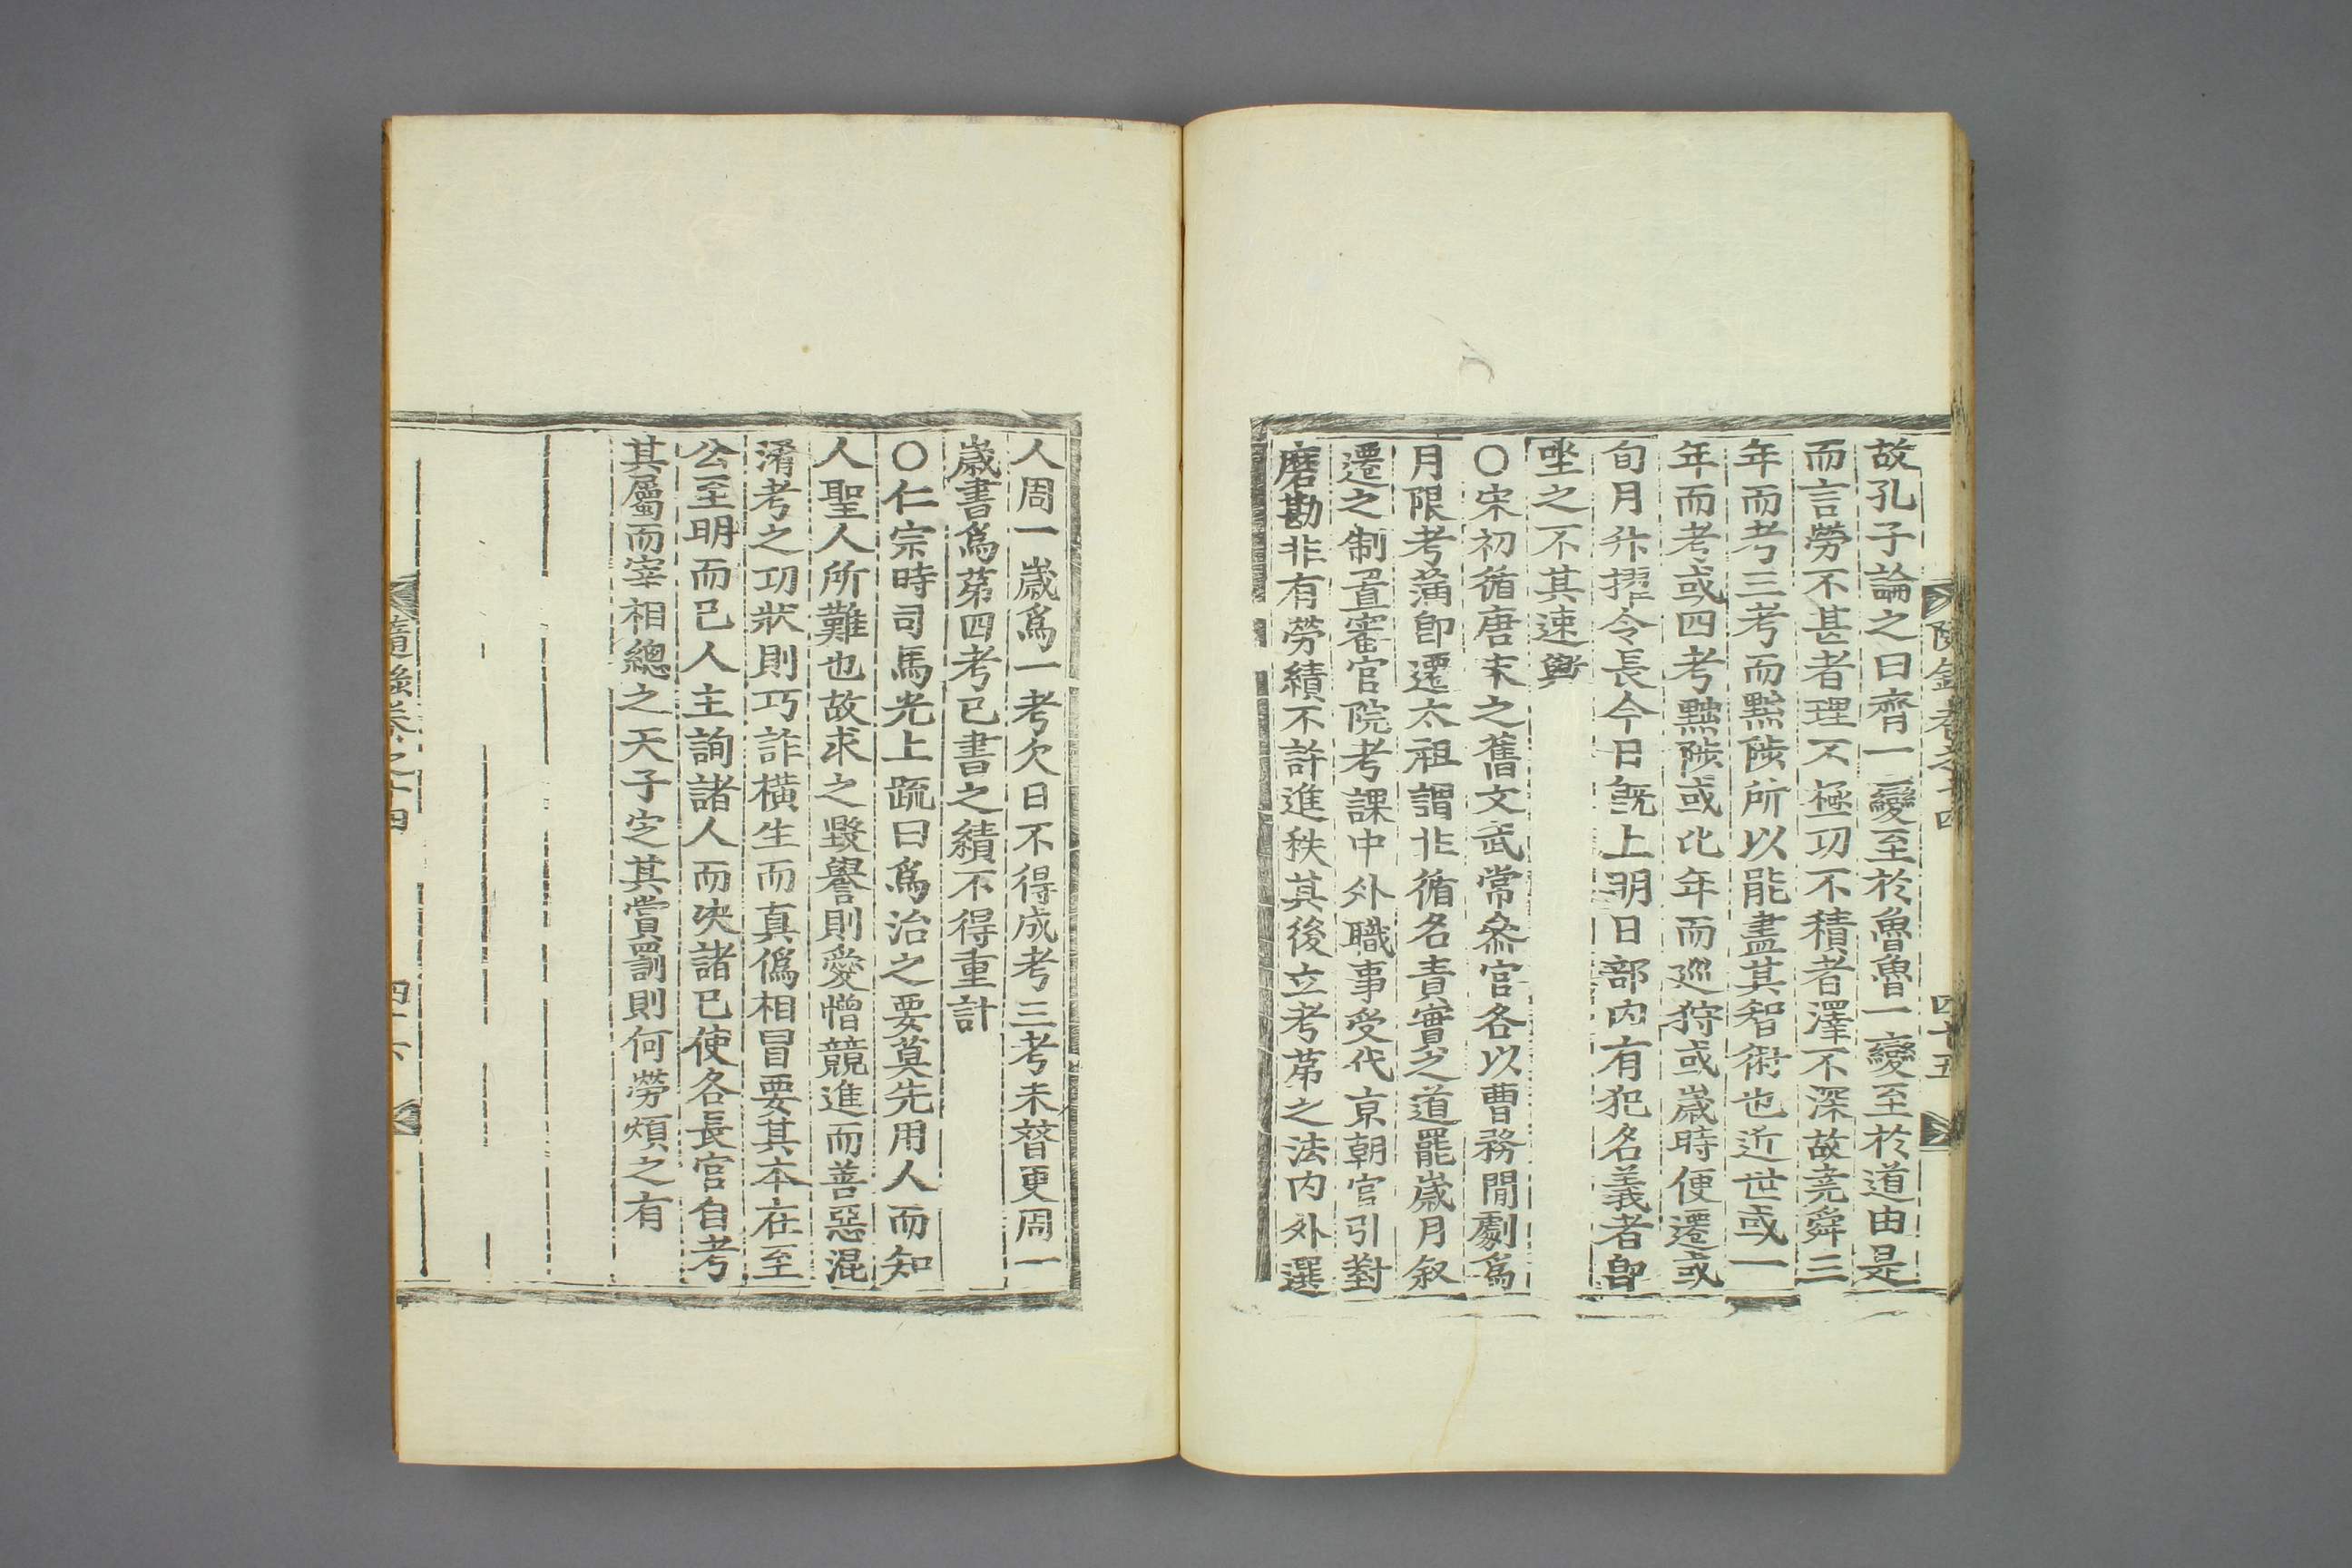 故孔子論之曰齊一變至於魯魯一變至於道由是
而言勞不甚者理不極功不積者澤不深故堯舜三
年而考三考而黜陟所以能盡其智術也近世或一
年而考或四考黜陟或比年而巡狩或歲時便遷或
旬月升擢令長今日旣上明日部內有犯名義者卽
坐之不其速歟
○宋初循唐末之舊文武常叅官各以曹務閒劇爲
月限考滿卽遷太祖謂非循名責實之道罷歲月叙
遷之制置審官院考課中外職事受代京朝官引對
磨勘非有勞績不許進秩其後立考第之法內外選
隨錄卷之十四
四十五
人周一歲爲一考欠日不得成考三考未替更周一
歲書爲第四考已書之績不得重計
○仁宗時司馬光上疏曰爲治之要莫先用人而知
人聖人所難也故求之毀譽則愛憎競進而善惡混
淆考之功狀則巧詐橫生而真僞相冒要其本在至
公至明而已人主詢諸人而决諸已使各長官自考
其屬而宰相總之天子定其賞罰則何勞煩之有
隨錄卷之十四
四十六